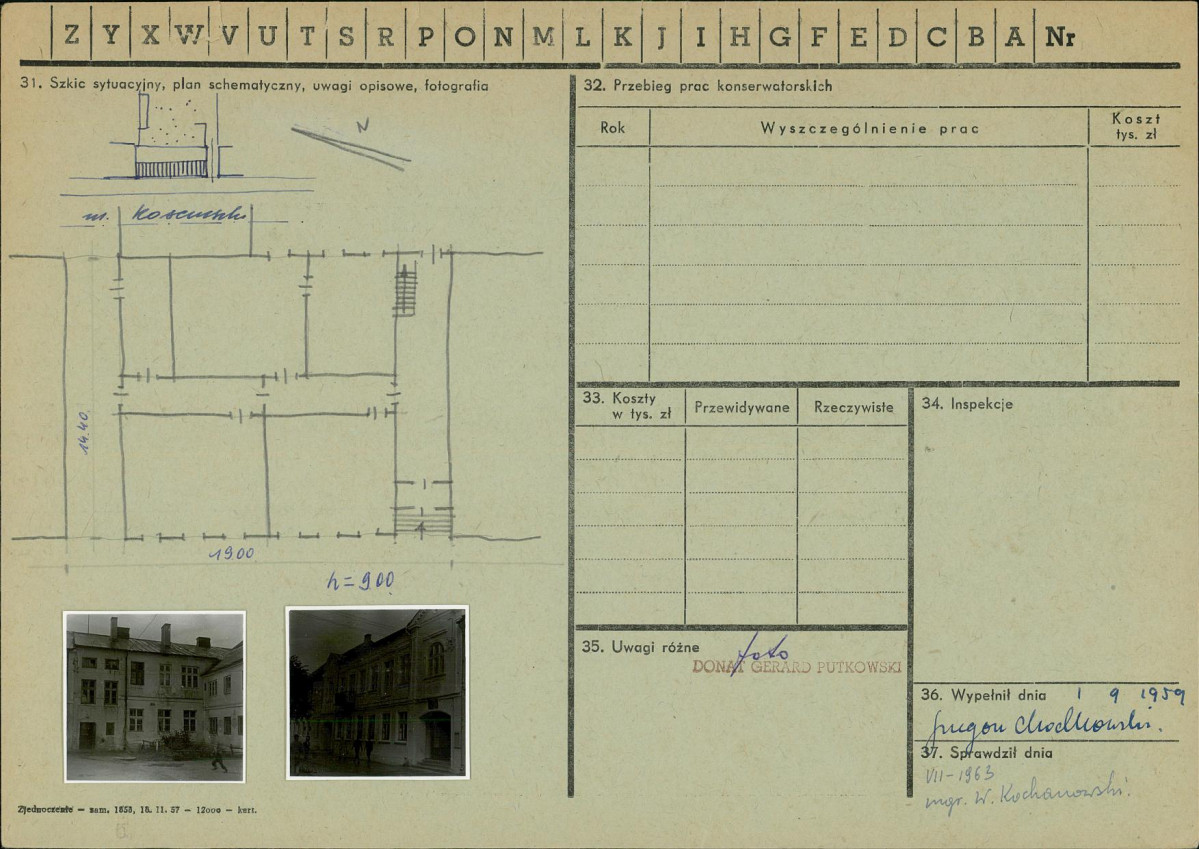 Z Y X W V U T S R P O N M L K J I H G F E D C B A Nr
31. Szkic sytuacyjny, plan schematyczny, uwagi opisowe, fotografia
N
ul. Kościuszki
14.40
19.00
h = 9.00
Zjednoczenie — zam. 1658, 16. II. 57 — 12000 — kart.
32. Przebieg prac konserwatorskich
Rok
Wyszczególnienie prac
Koszt
tys. zł
33. Koszty
w tys. zł
Przewidywane
Rzeczywiste
34. Inspekcje
35. Uwagi różne
foto
DONAT GERARD PUTKOWSKI
36. Wypełnił dnia 1 9 1959
Grzegorz Chodkowski.
37. Sprawdził dnia
VII-1963
mgr. W. Kochanowski.